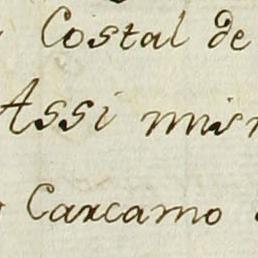 Costal de
Assi mis
Carcamo